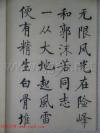 无限风光在险峰
和郭沫若同志
一从大地起风雷
便有精生白骨堆